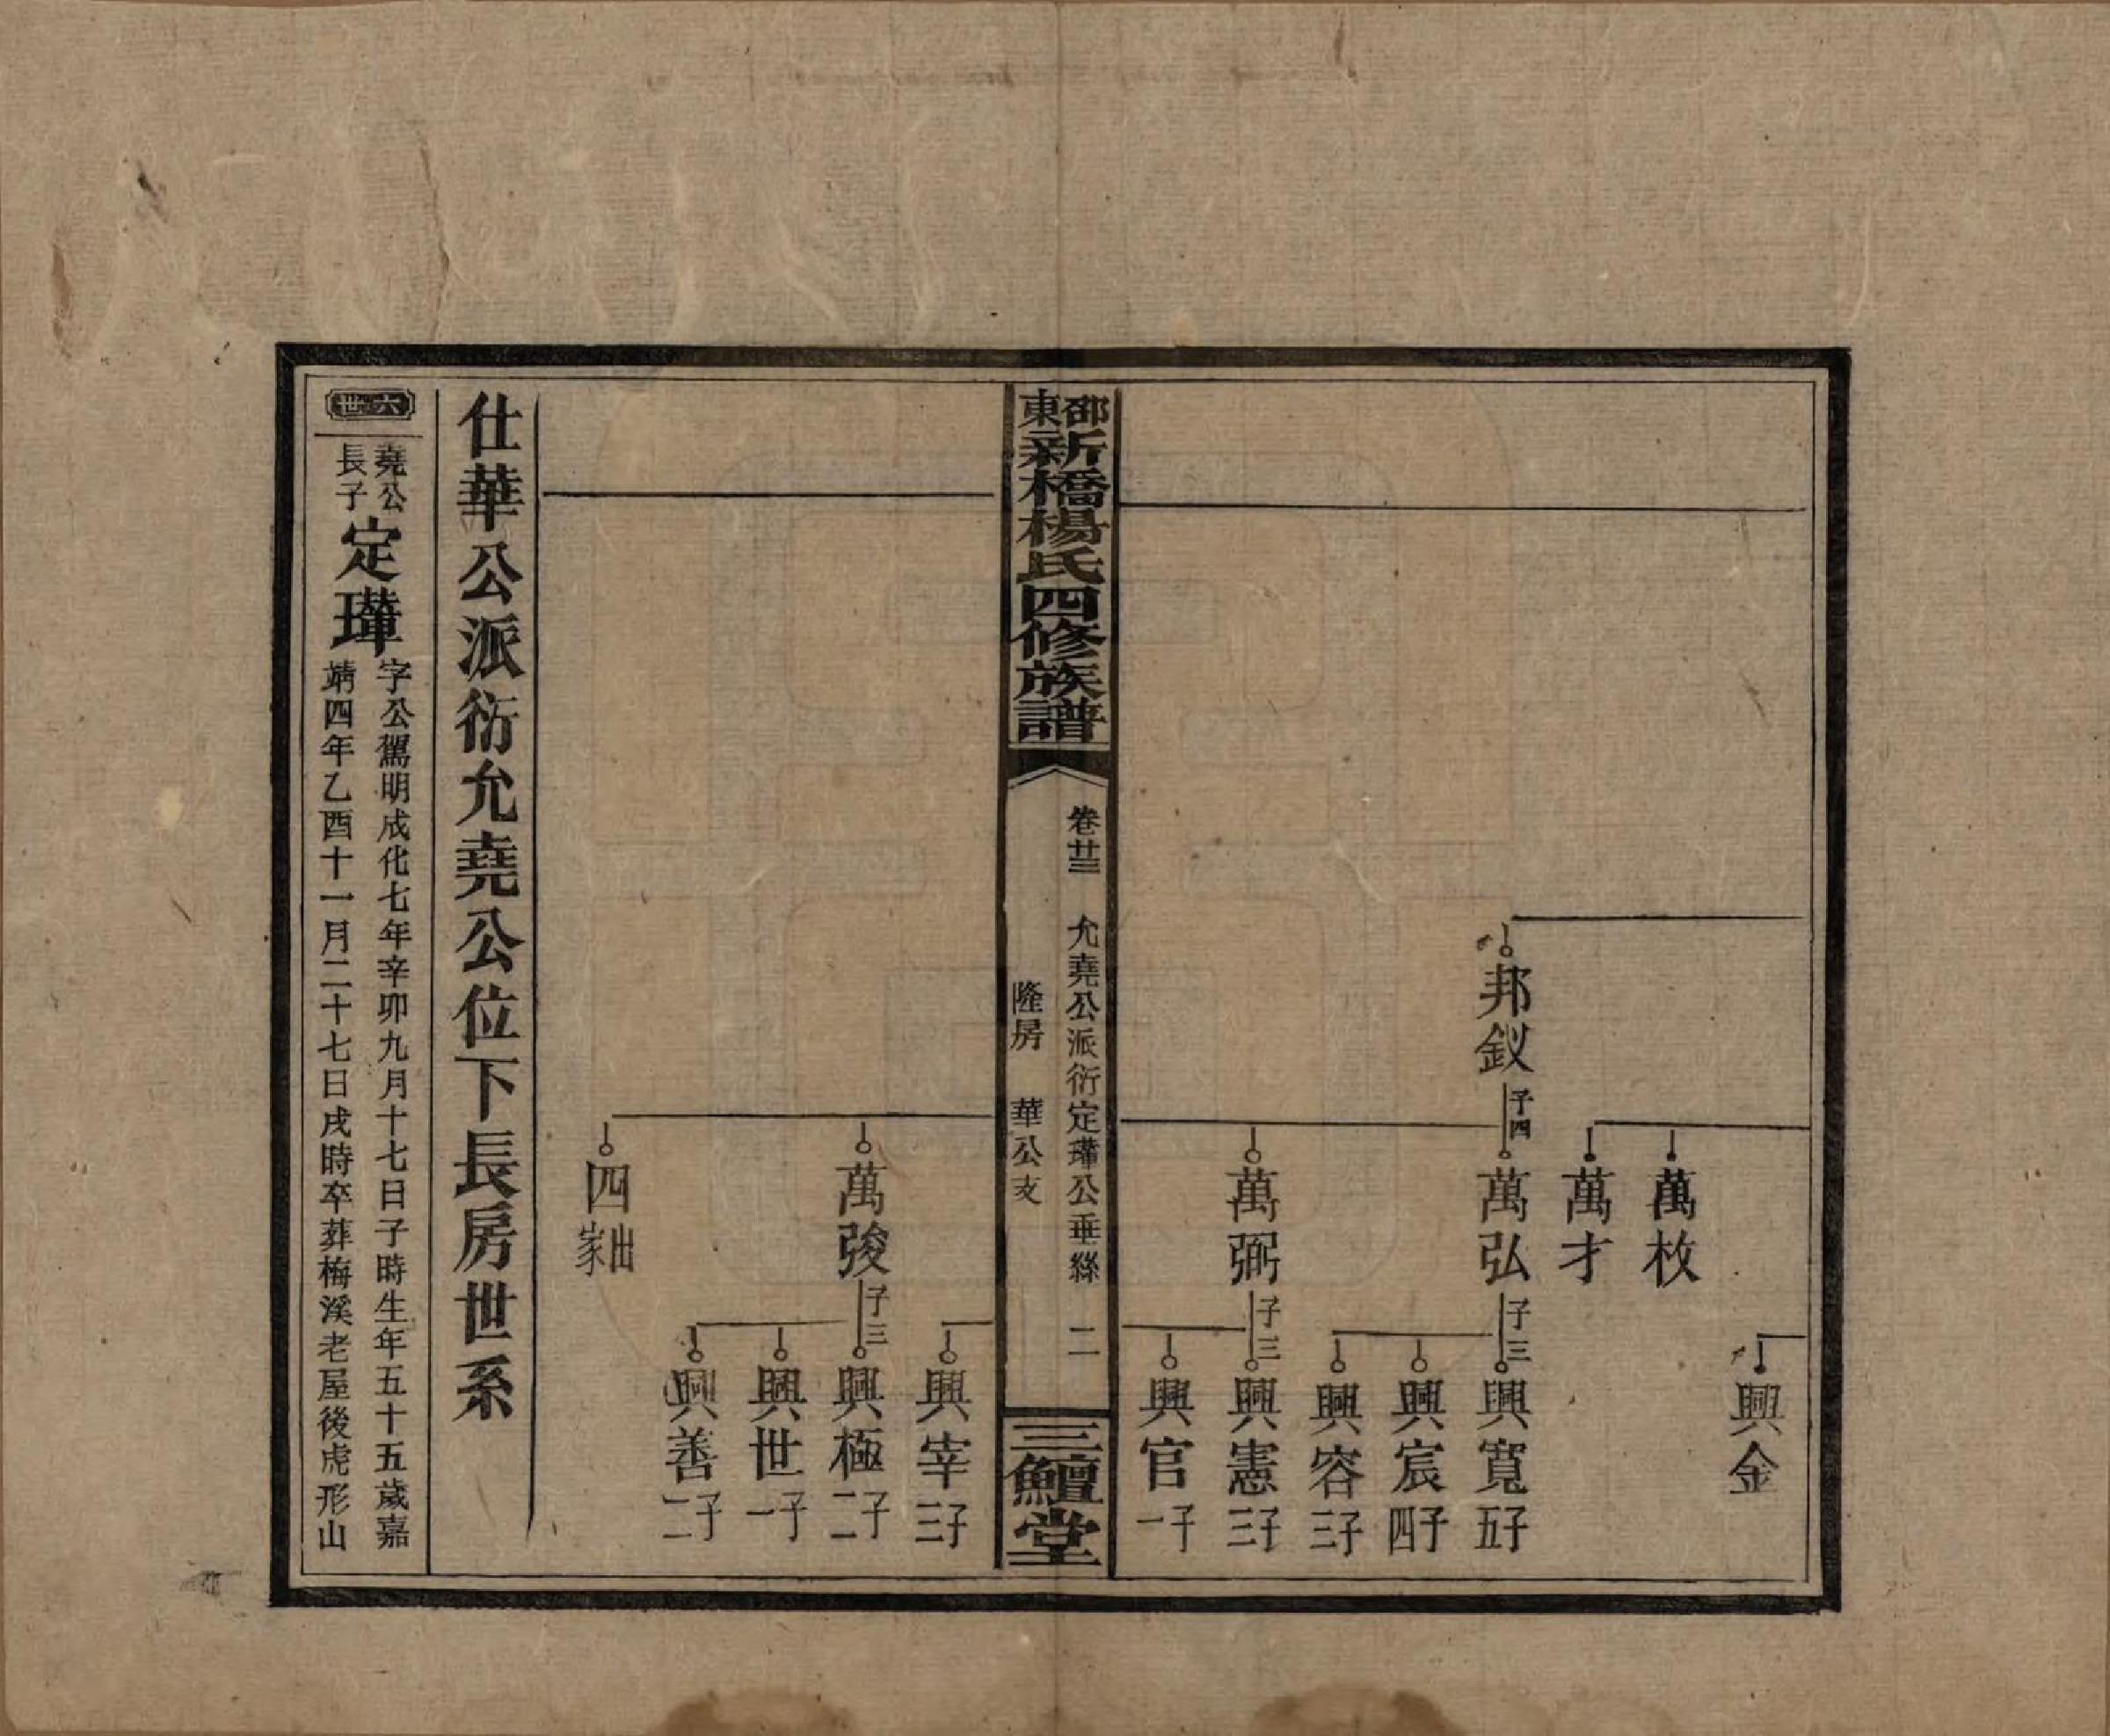 興金
萬枚
萬才
邦釵 子四
萬弘 子三
興寬 子五
興宸 子四
興容 子三
萬弼 子三
興憲 子三
興官 子一
邵東新橋楊氏四修族譜
卷廿三 允堯公派衍定瓘公垂絲 二
隆房 華公支
三鱣堂
興宰 子三
萬㕙 子三
興極 子二
興世 子一
興善 子二
四 出家
仕華公派衍允堯公位下長房世系
六世
堯公長子
定瓘
字公駕明成化七年辛卯九月十七日子時生年五十五歲嘉
靖四年乙酉十一月二十七日戌時卒葬梅溪老屋後虎形山